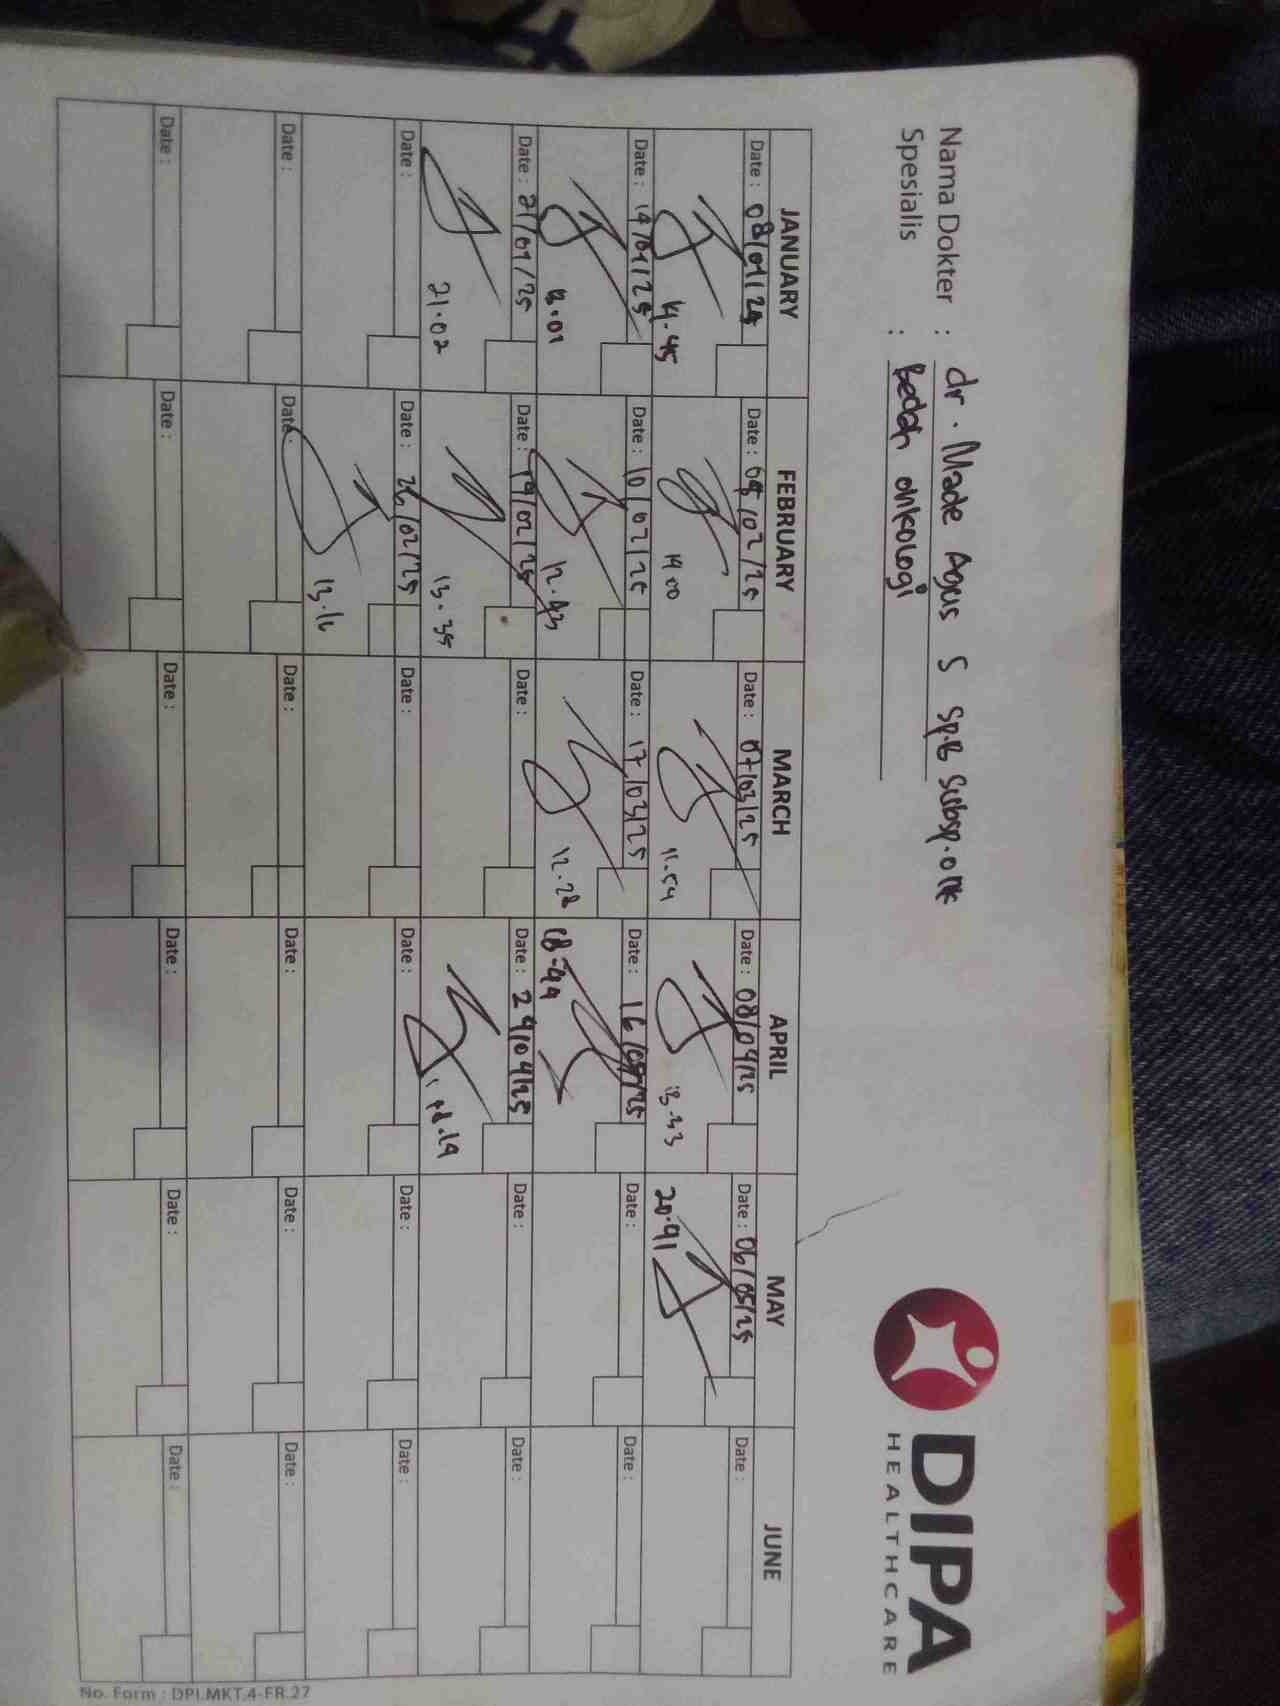 DIPA
HEALTHCARE
Nama Dokter : dr. Made Agus S Sp.B Subsp.onk
Spesialis : Bedah onkologi
JANUARY FEBRUARY MARCH APRIL MAY JUNE
Date : 08/01/25 Date : Date : 07/03/25 Date : 08/04/25 Date : 06/05/25 Date :
14.45 14.00 11.54 13.33 20.41
Date : 14/01/25 Date : 10/02/25 Date : 17/03/25 Date : 16/ /25 Date : Date :
12.43 12.28
Date : 21/01/25 Date : 19/02/25 Date : Date : 29/04/25 Date : Date :
21.02 13.35
Date : Date : 26/02/25 Date : Date : Date : Date :
13.16
Date : Date : Date : Date : Date : Date :
Date : Date : Date : Date : Date : Date :
No. Form : DPI.MKT.4-FR.27